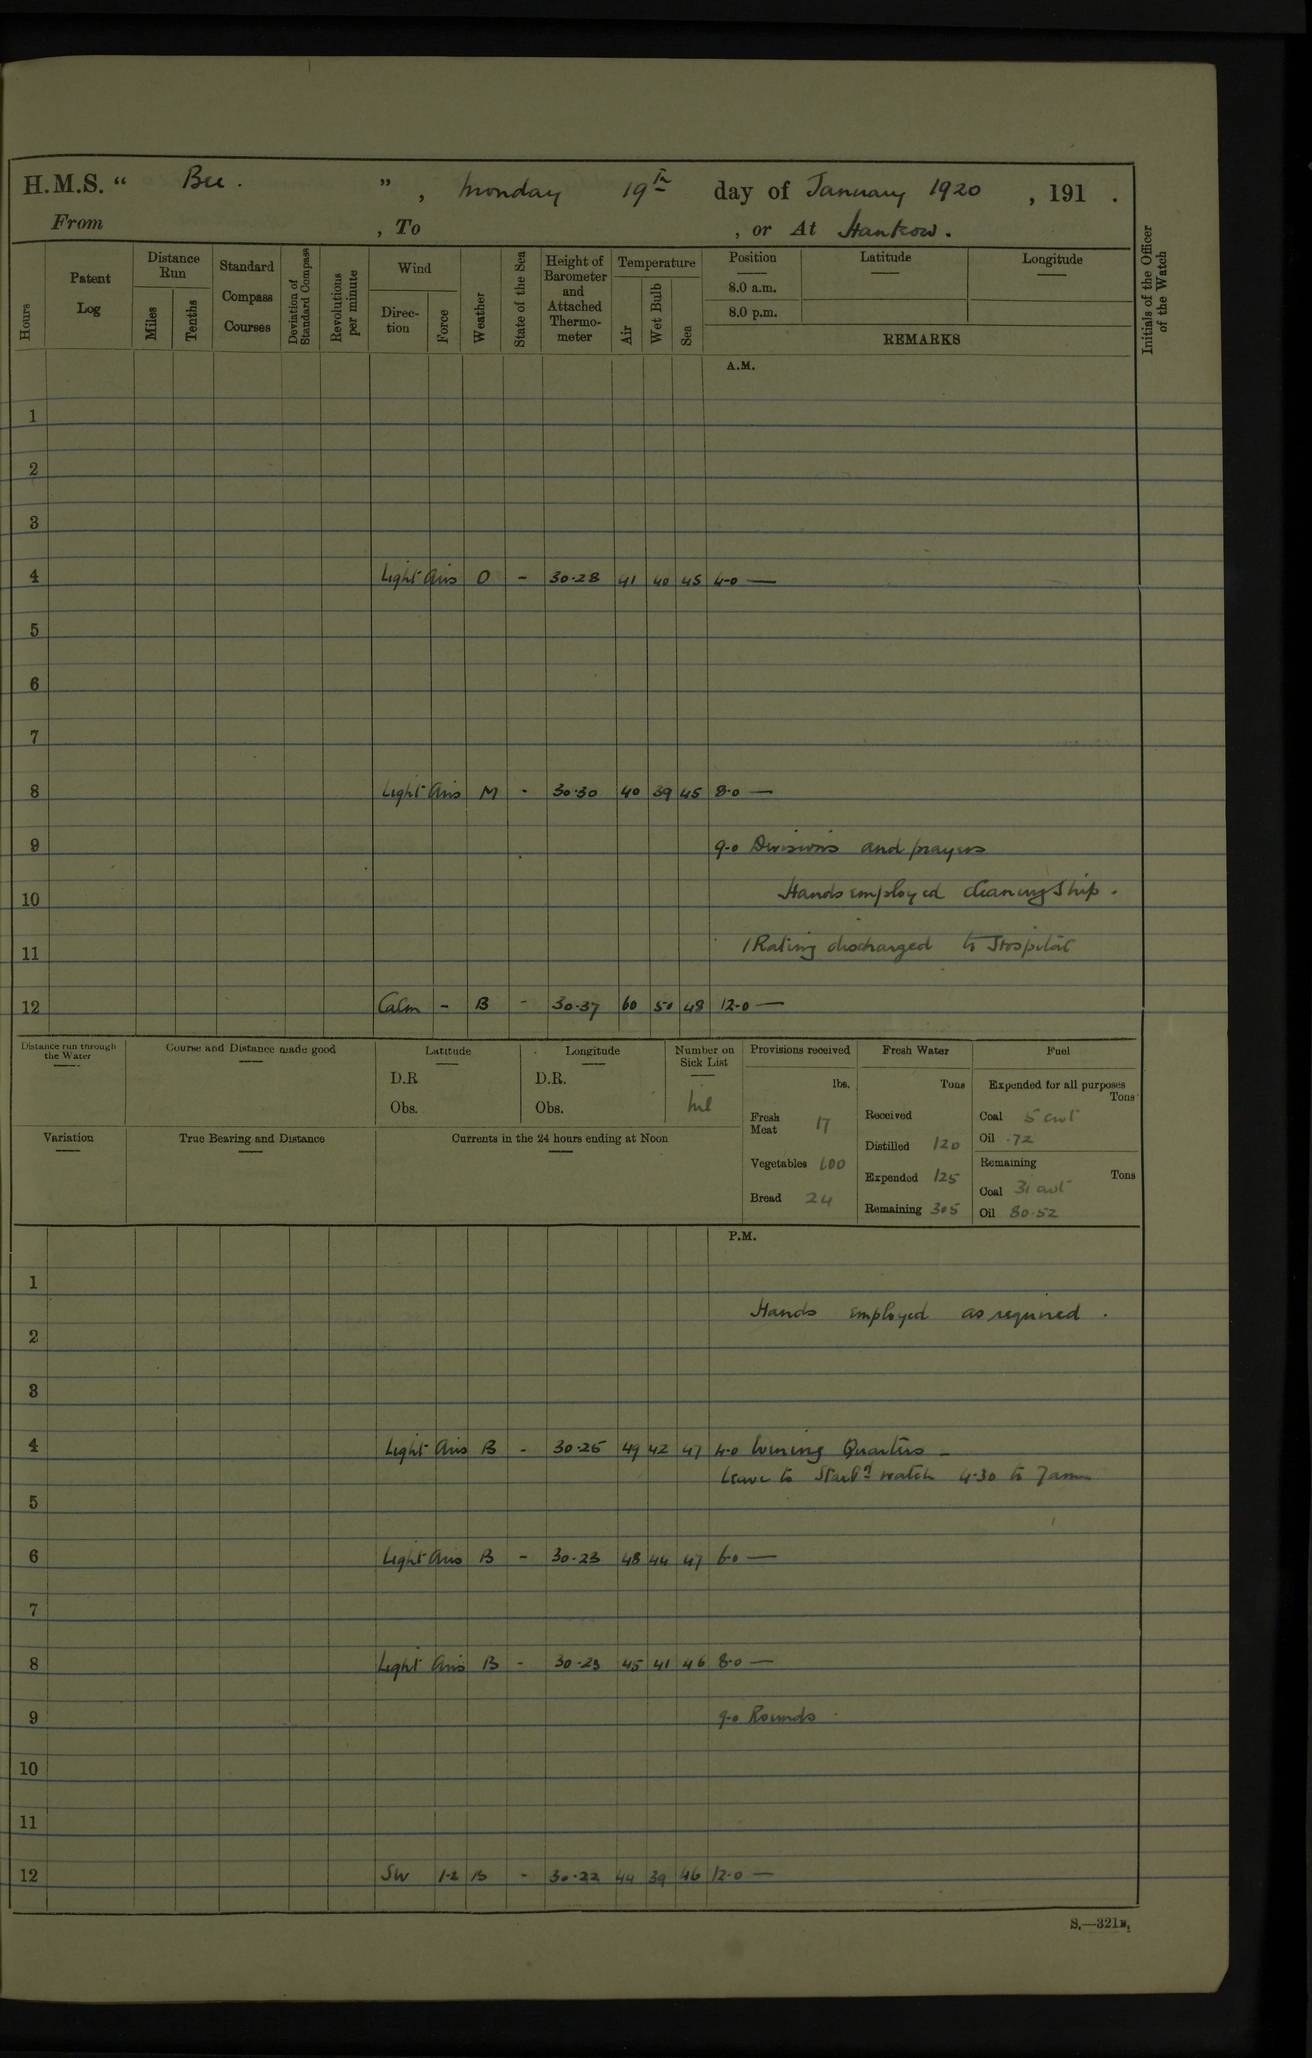 H.M.S. “ Bee. ” , Monday 19th day of January 1920 , 191 .
From , To , or At Hankow.
Hours
Patent Log
Distance Run
Miles
Tenths
Standard Compass Courses
Deviation of Standard Compass
Revolutions per minute
Wind
Direction
Force
Weather
State of the Sea
Height of Barometer and Attached Thermometer
Temperature
Air
Wet Bulb
Sea
Position Latitude Longitude
8.0 a.m.
8.0 p.m.
REMARKS
Initials of the Officer of the Watch
A.M.
1
2
3
4 Light airs O - 30.28 41 40 45 4-0 —
5
6
7
8 Light airs M - 30.30 40 39 45 8.0 —
9 9-0 Divisions and prayers
10 Hands employed cleaning ship.
11 1 Rating discharged to Hospital
12 Calm - B - 30.37 60 50 48 12-0 —
Distance run through the Water
Course and Distance made good
Latitude
D.R
Obs.
Longitude
D.R.
Obs.
Number on Sick List
nil
Provisions received
lbs.
Fresh Meat 17
Vegetables 100
Bread 24
Fresh Water
Tons
Received
Distilled 120
Expended 125
Remaining 305
Fuel
Expended for all purposes
Tons
Coal 5 cwt
Oil .72
Remaining
Tons
Coal 31 cwt
Oil 80.52
Variation
True Bearing and Distance
Currents in the 24 hours ending at Noon
P.M.
1
Hands employed as required .
2
3
4 Light airs B - 30.25 49 42 47 4-0 Evening Quarters
Leave to Starbd watch 4-30 to 7am
5
6 Light airs B - 30.23 48 44 47 6.0 —
7
8 Light airs B - 30.23 45 41 46 8.0 —
9 9-0 Rounds
10
11
12 SW 1-2 B - 30.22 44 39 46 12.0 —
S.—321B.